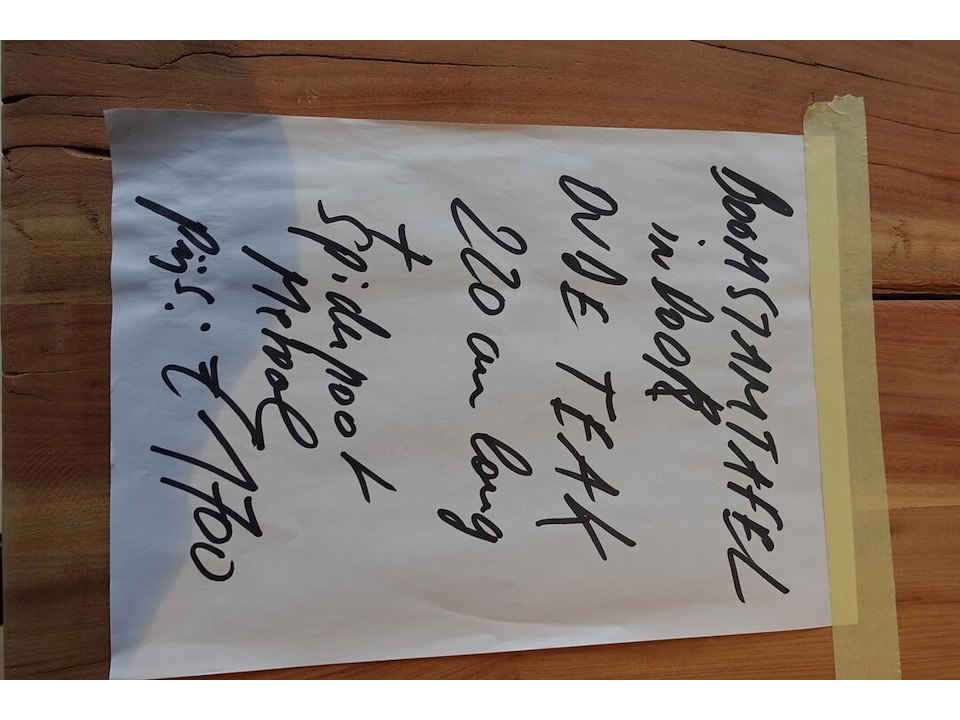 BOOMSTAMTAFEL
in
OUDE TEAK
220 cm lang
+
Spiderpoot
Metaal
prijs: € 1700